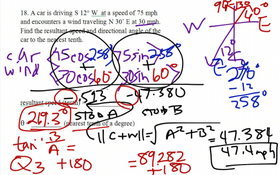 18. A car is driving S 12° W at a speed of 75 mph
and encounters a wind traveling N 30° E at 30 mph.
Find the resultant speed and directional angle of the car
to the nearest tenth.
car 75cos258° 75sin258°
wind 30cos60° 30sin60°
+ +
-.593 -47.380
STO→A STO→B
resultant speed
269.3° (nearest tenth of a degree)
||C+W|| = √A²+B² = 47.384
47.4 mph
tan⁻¹ B/A = 89.282
+180
Q3 +180
W E
S
12°
60°
270°
-12
258°